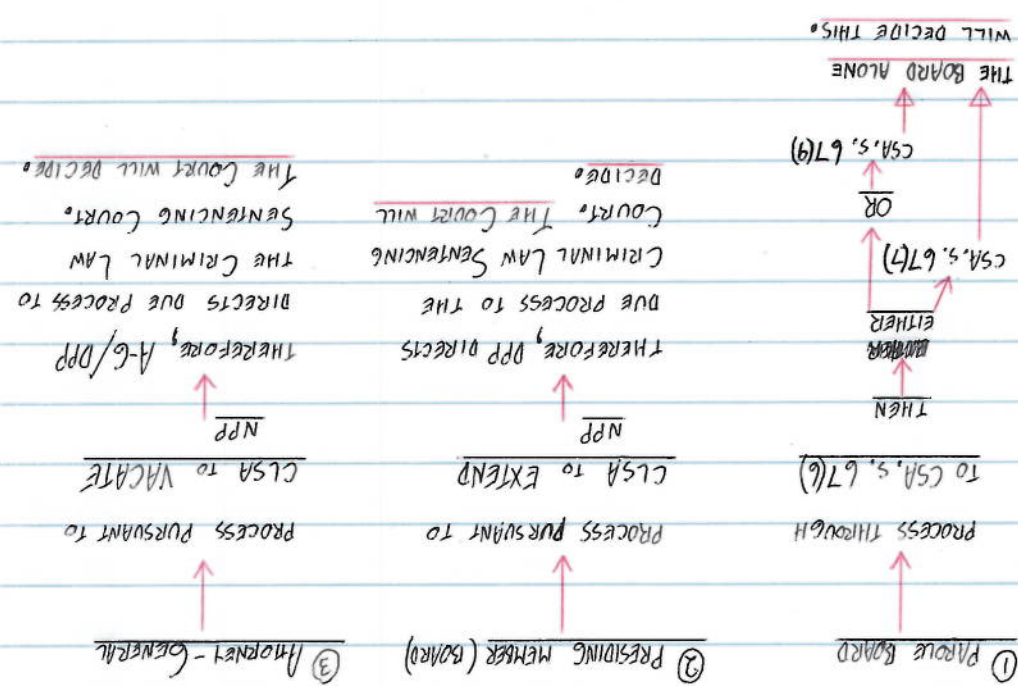 ① PAROLE BOARD
PROCESS THROUGH
TO CSA, S. 67(6)
THEN
EITHER
CSA, S. 67(7)
OR
CSA, S. 67(9)
THE BOARD ALONE
WILL DECIDE THIS.
② PRESIDING MEMBER (BOARD)
PROCESS PURSUANT TO
CLSA TO EXTEND
NPP
THEREFORE, DPP DIRECTS
DUE PROCESS TO THE
CRIMINAL LAW SENTENCING
COURT. THE COURT WILL
DECIDE.
③ ATTORNEY-GENERAL
PROCESS PURSUANT TO
CLSA TO VACATE
NPP
THEREFORE, A-G/DPP
DIRECTS DUE PROCESS TO
THE CRIMINAL LAW
SENTENCING COURT.
THE COURT WILL DECIDE.